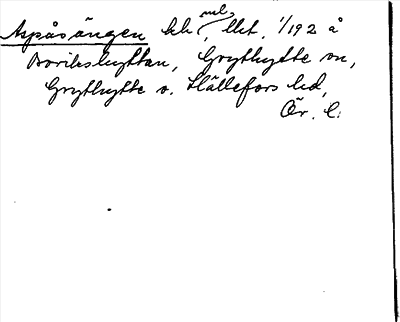 Aspåsängen kh nb, llet. 1/192 å
Borileshyttan, Grythytte sn,
Grythytte o. Hällefors hd,
Ör. l: